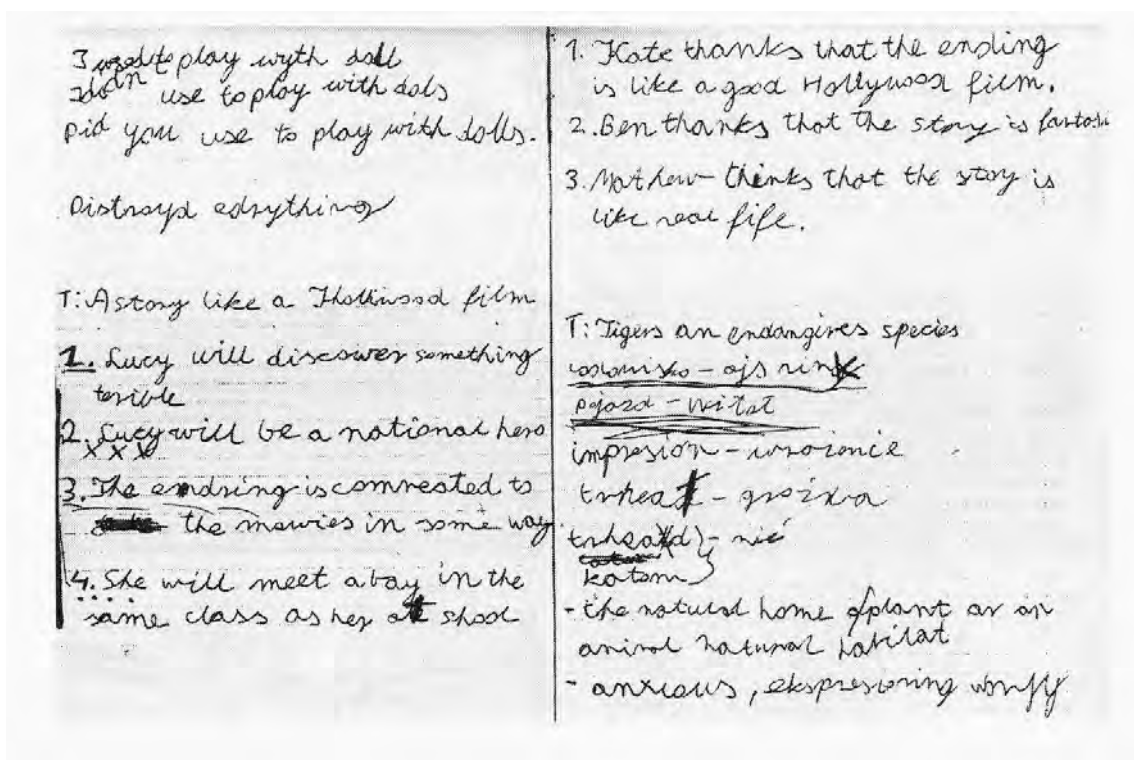 I used to play wyth doll
I didn use to play with dols
Did you use to play with dolls.
Distroyd edrything
T: A story like a Holliwood film
1. Lucy will discower something
terible
2. Lucy will be a national hero
3. The endring is comnected to
the mowies in some way
4. She will meet a boy in the
same class as her at shool
1. Kate thanks that the ending
is like a good Hollywood fium.
2. Ben thanks that the story is fantasi
3. Mathew thinks that the story is
like real fife.
T: Tigers an endangires species
- ajs rink
pojazd - witat
impresion - wrażenie
trheat - groźba
trheatd - nić
katom
- the natural home of plant or an
animal natural habitat
- anxious, ekspresioning worry